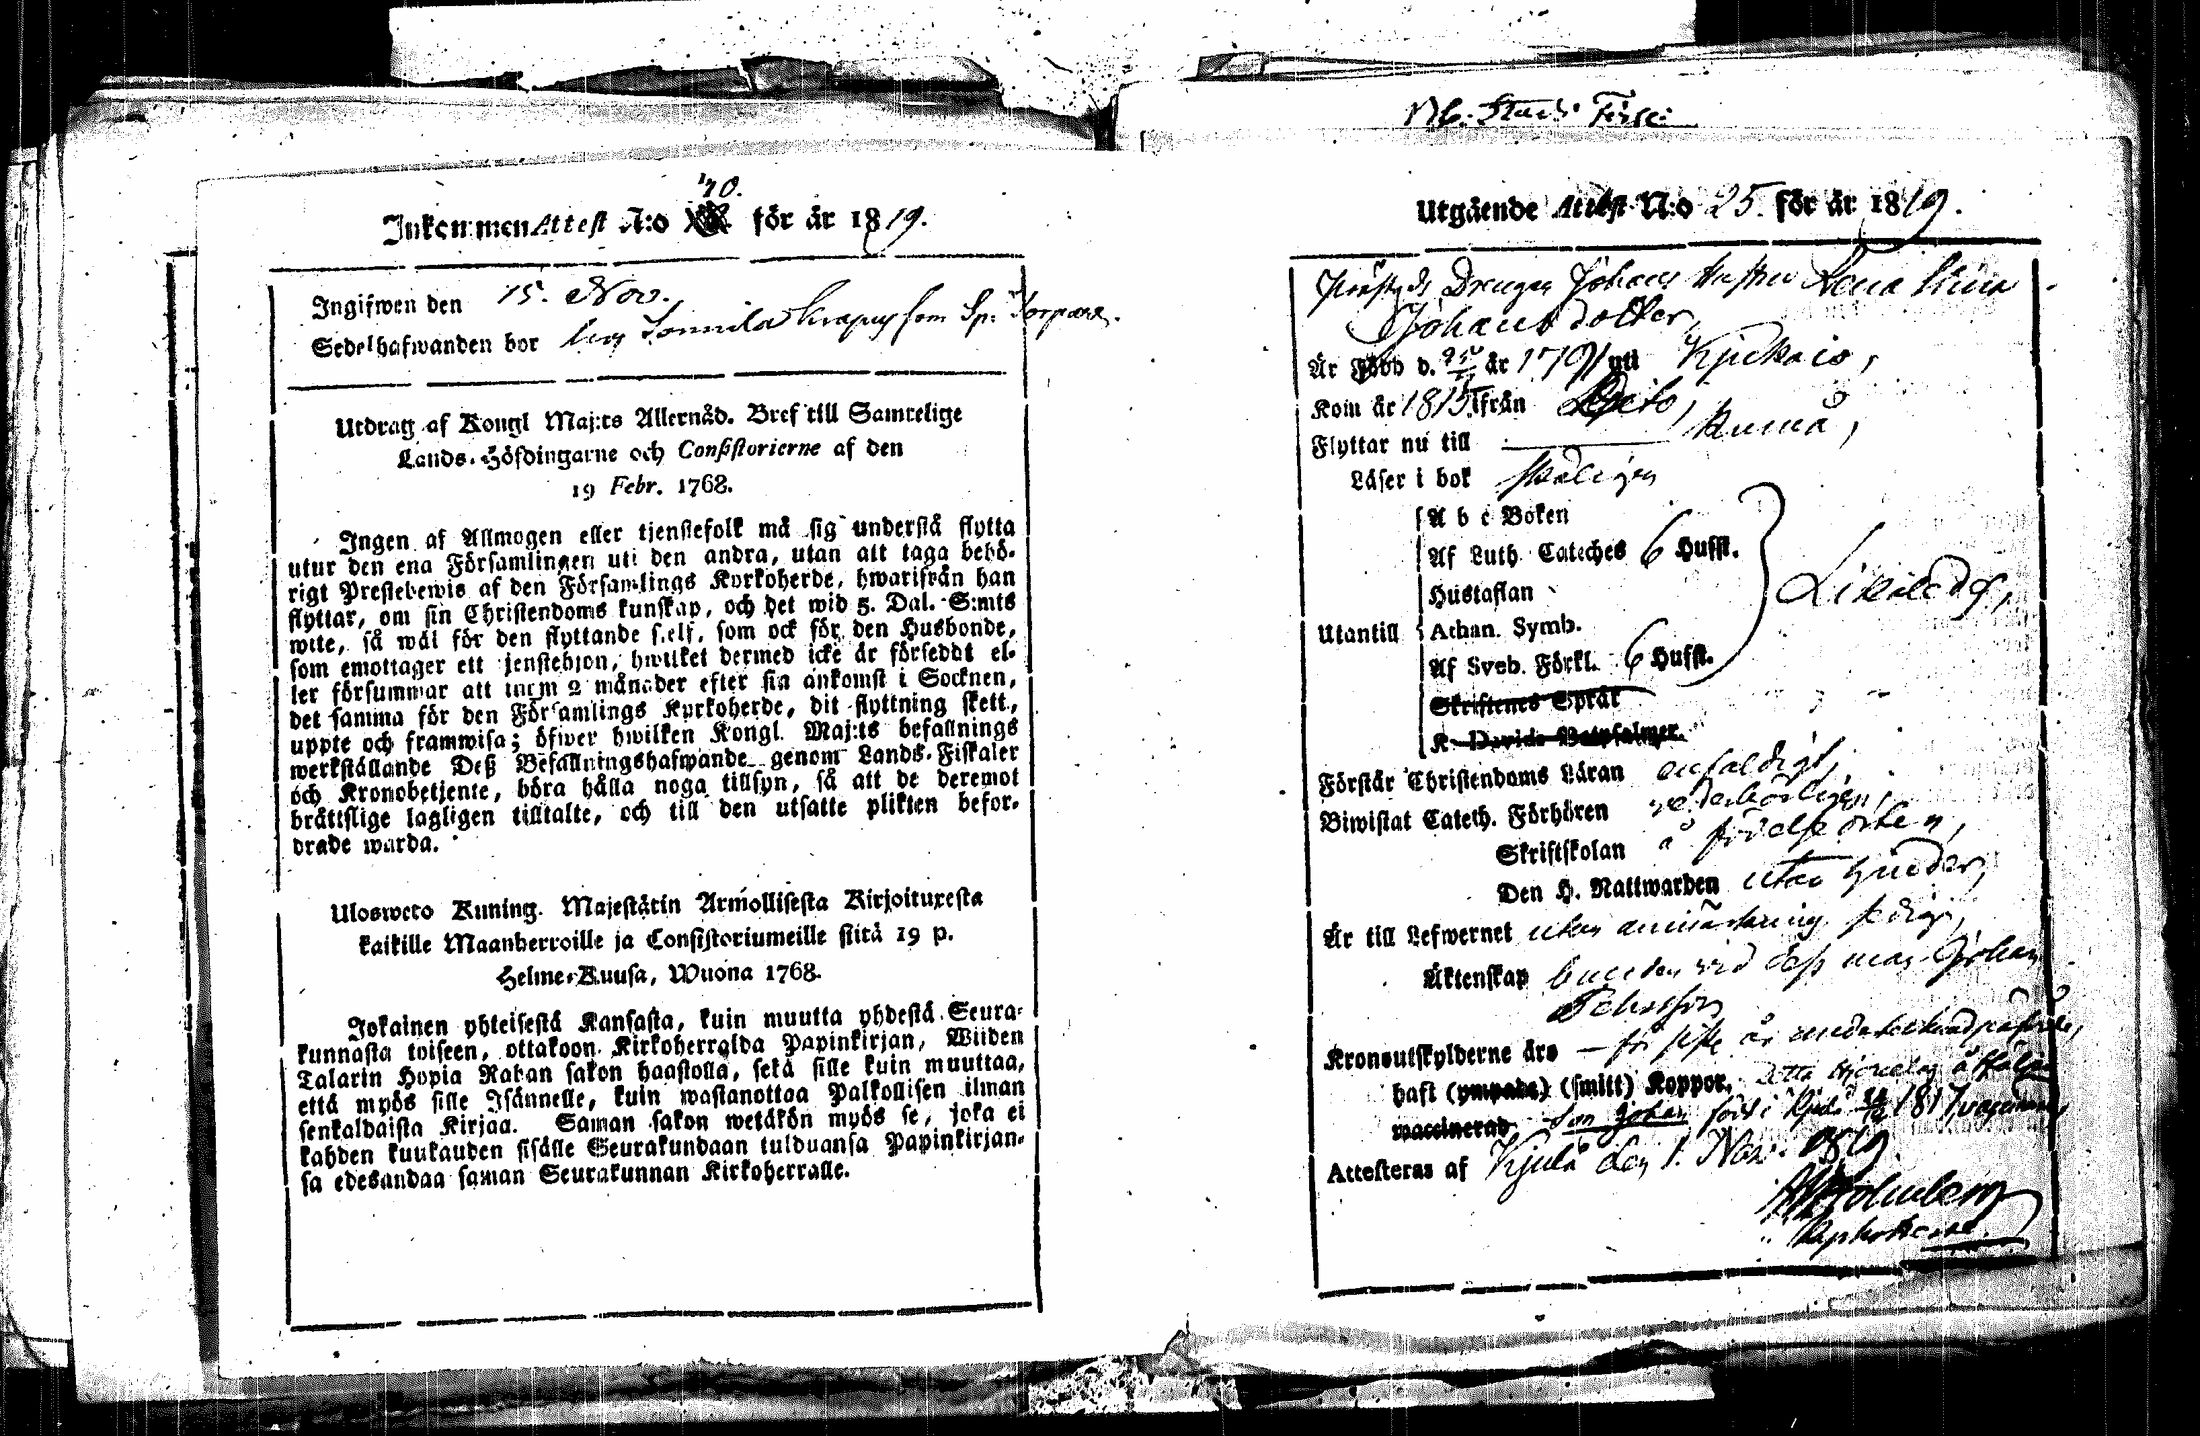 Inkommen Attest N:o 40. för år 1819.
Ingifwen den 15. Nov.
Sedelhafwanden bor Sonnila Krapu som Sp: Torpare.
Utdrag af Kongl Maj:ts Allernåd. Bref till Samtelige
Lands-Höfdingarne och Consistorierne af den
19 Febr. 1768.
Ingen af Allmogen eller tjenstefolk må sig understå flytta
utur den ena Församlingen uti den andra, utan att taga behö-
rigt Prestebewis af den Församlings Kyrkoherde, hwarifrån han
flyttar, om sin Christendoms kunskap, och det wid 5. Dal. S:mts
wite, så wäl för den flyttande sielf, som ock för den Husbonde,
som emottager ett tjenstehion, hwilket dermed icke är försedt el-
ler försummar att inom 2 månader efter sin ankomst i Socknen,
det samma för den Församlings Kyrkoherde, dit flyttning skett,
uppte och framwisa; öfwer hwilken Kongl. Maj:ts befallnings
werkställande Deß Befallningshafwande genom Lands-Fiskaler
och Kronobetjente, böra hålla noga tillsyn, så att de deremot
bråttslige lagligen tilltalte, och till den utsatte plikten befor-
drade warda.
Ulosweto Kuning. Majestätin Armollisesta Kirjoituxesta
kaikille Maanherroille ja Consistoriumeille siitä 19 p.
Helme-Kuusa, Wuona 1768.
Jokainen yhteisestä Kansasta, kuin muutta yhdestä Seura-
kunnasta toiseen, ottakoon Kirkoherralda Papinkirjan, Wiiden
Talarin Hopia Rahan sakon haastolla, sekä sille kuin muuttaa,
että myös sille Isännelle, kuin wastanottaa Palkollisen ilman
senkaldaista Kirjaa. Saman sakon wetäkön myös se, joka ei
kahden kuukauden sisälle Seurakundaan tulduansa Papinkirjan-
sa edesandaa saman Seurakunnan Kirkoherralle.
Utgående Attest N:o 25. för år 1819.
Drengen Johans Hustru Lena Stina
Johansdotter,
Är Född d. år 1791 uti Kjukais,
Kom år 1815 ifrån
Flyttar nu till Kumå,
Läser i bok skäligen
A b c Boken
Af Luth. Cateches 6 Hufst.
Hustaflan
Utantill Athan. Symb. Likaledes,
Af Sveb. Förkl. 6 Hufst.
Skriftenes Språk
K. Davids Botpsalmer.
Förstår Christendoms Läran enfaldigt,
Biwistat Cateth. Förhören wederbörligen,
Skriftskolan å födelse orten,
Den H. Nattwarden utan hinder,
Är till Lefwernet utan anmärkning sedig,
Äktenskap bunden wid deß man Johan
Kronoutskylderne äro för siste år
haft (ympade) (smitt) Koppor. Detta Hjonelag
waccinerad Son Johan född i 1817 vaccinerad,
Attesteras af Kjulå den 1. Nov. 1819.
Holmberg